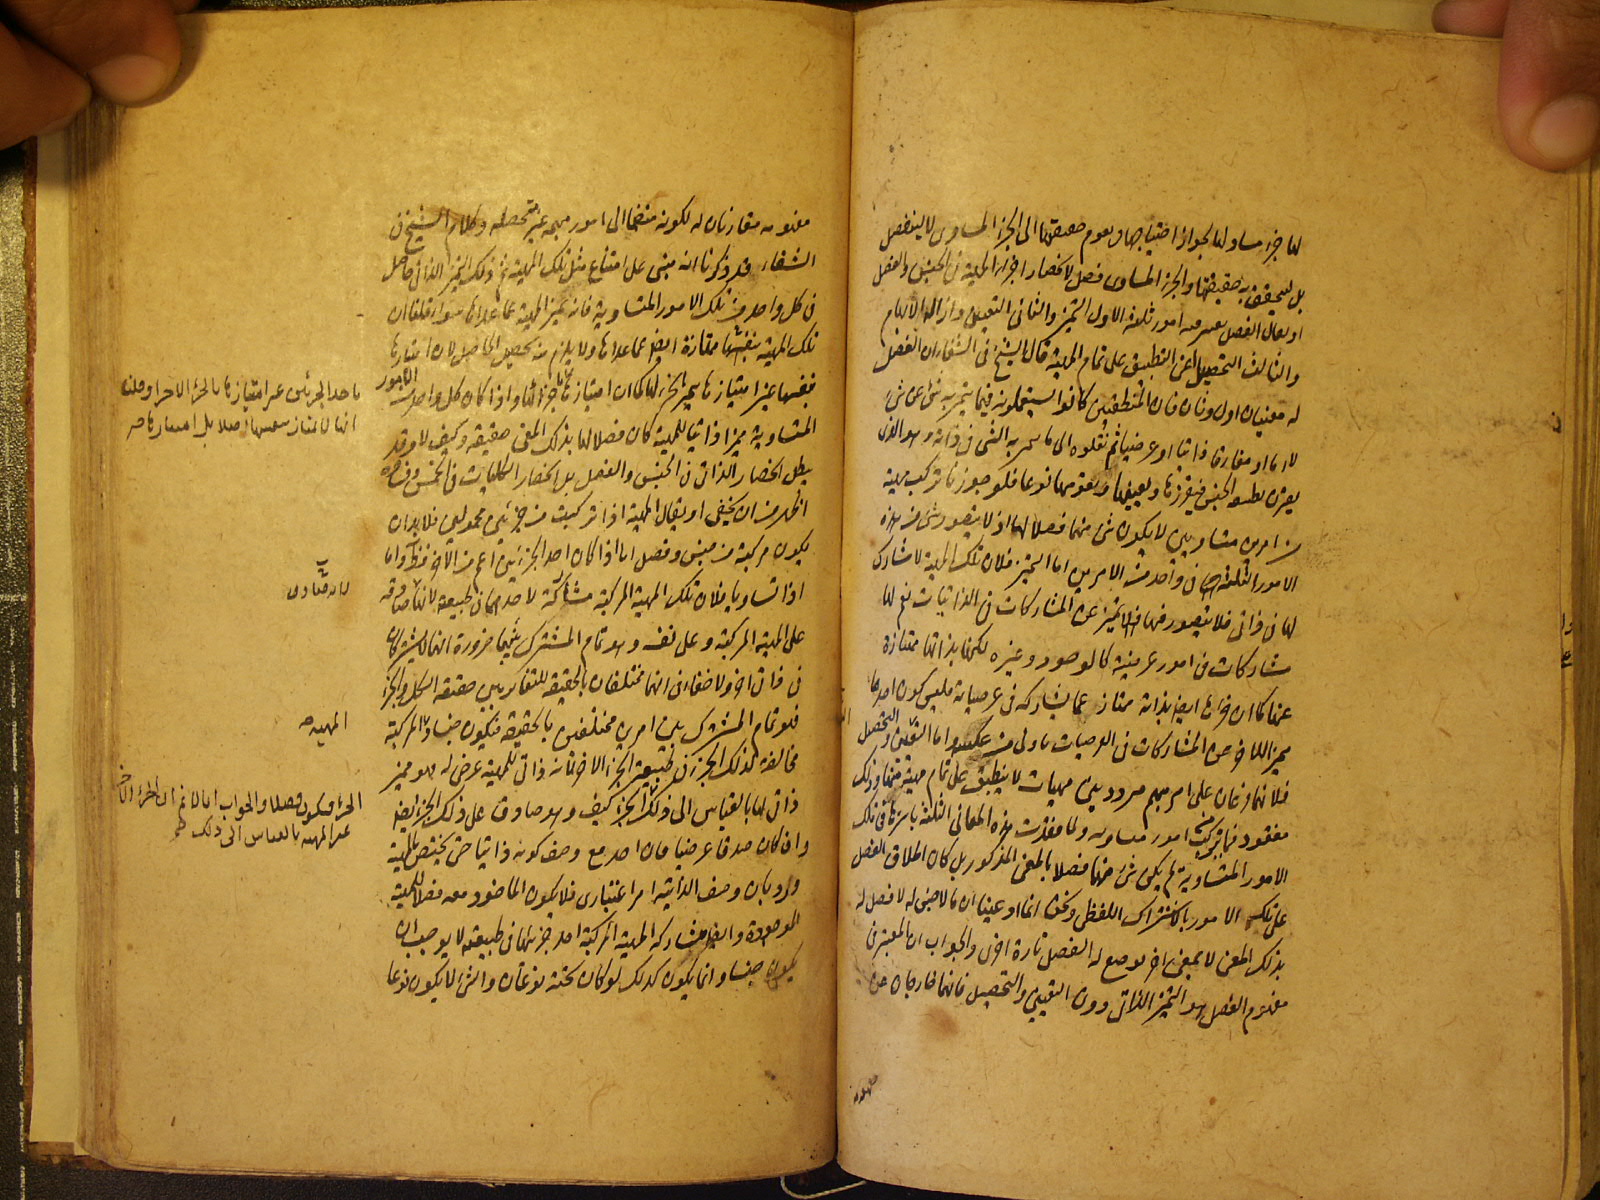 لها جزء مساو لها لجواز احتياجها و تقوم حقيقتها الى الجزء المساوى لا لينفصل
بل ليتحقق به حقيقتها والجزء المساوى فصل لانحصار اجزاء المهية فى الجنس والفصل
او يقال الفصل يعتبر فيه امور ثلثة الاول التميز والثانى التعيين وازالة الابهام
والثالث التحصيل اعنى التطبيق على تمام المهية قال الشيخ فى الشفاء ان الفصل
له معنيان اول وثان فان المنطقيين كانوا يستعملونه فيما يتميز به شئ عن شئ
لازما او مفارقا ذاتيا او عرضيا ثم نقلوه الى ما يتميز به الشئ فى ذاته وهو الذى
يقترن بطبيعة الجنس فيفرزها و يعينها و يقومها نوعا فلو جوزنا تركب مهية
من امرين متساويين لا يكون شئ منهما فصلا لها اذ لا يتصور شئ من هذه
الامور الثلثة فى واحد من الامرين اما التميز فلان تلك المهية لا مشارك
لها فى ذاتى فلا يتصور فيها التميز عن المشاركات فى الذاتيات نعم لها
مشاركات فى امور عرضية كالوجود و غيره لكنها بذاتها ممتازة
عنها كما ان جزئها ايضا بذاته ممتاز عما يشاركه فى عرضياته فليس كون احدهما
مميزا للاخر عن المشاركات فى العرضيات باولى من عكسه واما التعين والتحصيل
فلانهما فرعان على امر مبهم مردد بين مهيات لا ينطبق على تمام مهية منها وذلك
مفقود فيما تركبت من امور متساوية ولما فقدت هذه المعانى الثلثة باسرها فى تلك
الامور المتساوية لم يكن شئ منها فصلا بالمعنى المذكور بل كان اطلاق الفصل
على تلك الامور باشتراك اللفظ ونحن انما ادعينا ان ما لا جنس له لا فصل له
بذلك المعنى لا بمعنى اخر يوضع له الفصل تارة اخرى والجواب ان المعتبر فى
مفهوم الفصل هو التميز الذاتى دون التعيين والتحصيل فانهما خارجان عن
مفهومه
مفهومه مقارنان له لكونه منضما الى امور مبهمة غير متحصلة وكلام الشيخ فى
الشفاء قد ذكرنا انه مبنى على امتناع مثل تلك المهية ثم ذلك التميز الذاتى حاصل
فى كل واحد من تلك الامور المتساوية فانه يميز المهية عما عداها سواء قلنا ان
تلك المهية بنفسها ممتازة ايضا عما عداها ولا يلزم منه تحصيل الحاصل لان امتيازها
بنفسها غير امتيازها بجزئها كما ان امتيازها و اذا كان كل واحد من الامور
المتساوية مميزا ذاتيا للمهية كان فصلا لها بذلك المعنى حقيقة وكيف لا وقد
بطل انحصار الذاتى فى الجنس والفصل بل انحصار الكليات فى الخمس و فساده
اظهر من ان يخفى او يقال المهية اذا تركبت من جزئين محمولين فلا بد ان
يكون مركبة من جنس و فصل اما اذا كان احد الجزئين اعم من الاخر فظ واما
اذا تساويا فلان تلك المهية المركبة مشاركة لاحدهما فى طبيعة لانها صادقة
على المهية المركبة و على نفسه و هو تمام المشترك بينهما ضرورة انهما لا يشتركان
فى ذاتى اخر ولا خفاء فى انهما مختلفان بالحقيقة للتغاير بين حقيقة الكل والجزء
فهو تمام المشترك بين امرين مختلفين بالحقيقة فيكون جنسا والمركبة
مخالفة لذلك الجزء فى طبيعة الجزء الاخر فانه ذاتى للمهية عرضى له فهو مميز
ذاتى لها بالقياس الى ذلك الجزء كيف و هو صادق على ذلك الجزء ايضا
وان كان صدقا عرضيا فان احد مع وصف كونه ذاتيا حتى يختص بالمهية
ورد بان وصف الذاتية امر اعتبارى فلا يكون الماخوذ معه فصلا للمهية
الموجودة و ايضا مشاركة المهية المركبة احد جزئيها فى طبيعته لا يوجب ان
يكون جنسا و انما يكون كذلك لو كان تحته نوعان والشئ لا يكون نوعا
باحد الجزئين غير امتيازها بالجزء الاخر او قلنا
انها لا تمتاز بنفسها اصلا بل امتيازها به
لانه متساوى
المهية
الجزء فيكون فصلا والجواب انا لا نم ان الجزء الاخر
غير المهية بالقياس الى ذلك